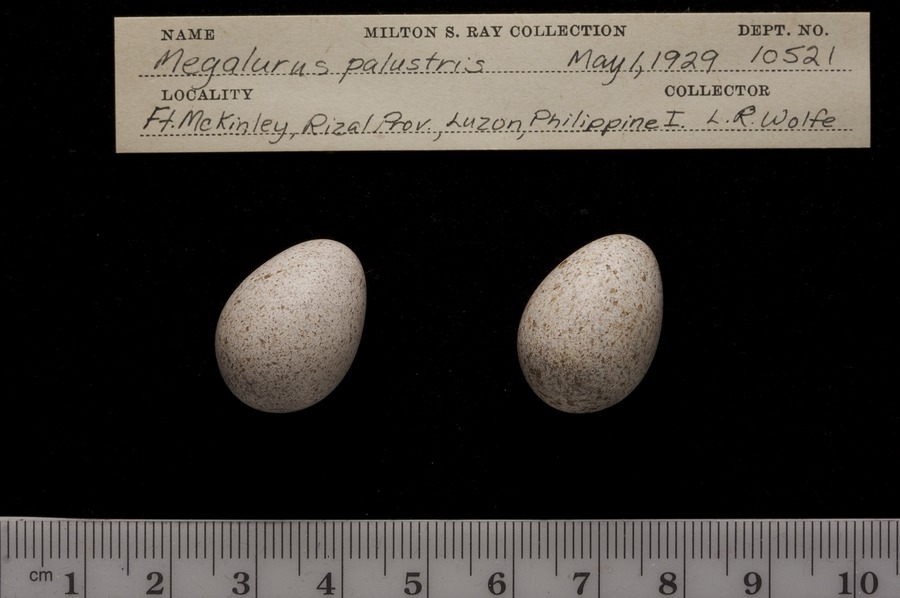 NAME MILTON S. RAY COLLECTION DEPT. NO.
Megalurus palustris May 1, 1929 10521
LOCALITY COLLECTOR
Ft. McKinley, Rizal Prov., Luzon, Philippine I. L.R. Wolfe
cm 1 2 3 4 5 6 7 8 9 10